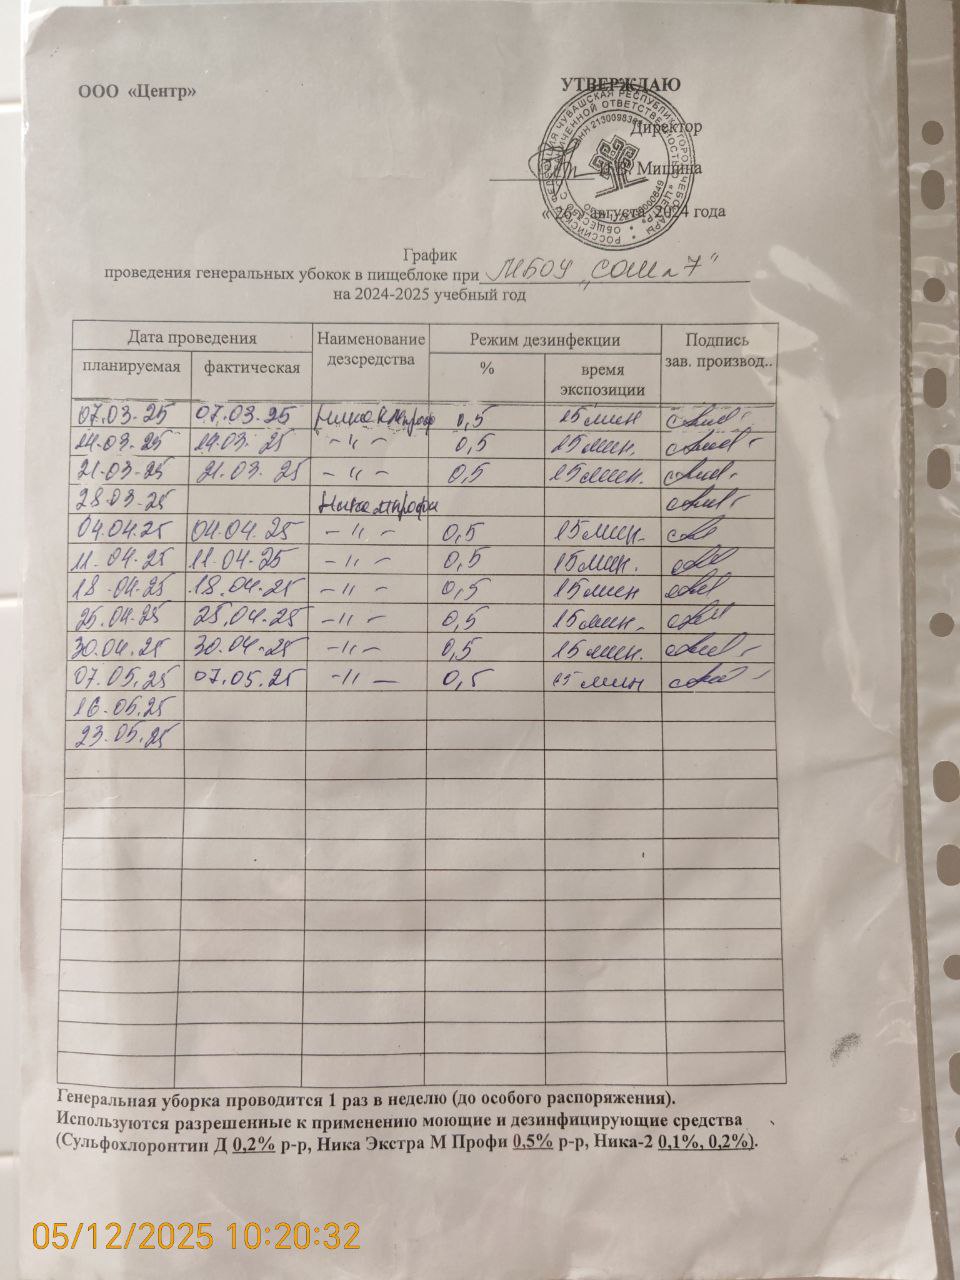 ООО «Центр»
УТВЕРЖДАЮ
Директор
Мишина
« 26 » августа 2024 года
График
проведения генеральных убокок в пищеблоке при МБОУ "СОШ №7"
на 2024-2025 учебный год
Дата проведения Наименование дезсредства Режим дезинфекции Подпись зав. производ..
планируемая фактическая % время экспозиции
07.03.25 07.03.25 0,5 15 мин
14.03.25 14.03.25 -"- 0,5 15 мин.
21.03.25 21.03.25 -"- 0,5 15 мин.
28.03.25
04.04.25 04.04.25 -"- 0,5 15 мин.
11.04.25 11.04.25 -"- 0,5 15 мин.
18.04.25 18.04.25 -"- 0,5 15 мин
25.04.25 25.04.25 -"- 0,5 15 мин.
30.04.25 30.04.25 -"- 0,5 15 мин.
07.05.25 07.05.25 -"- 0,5 15 мин
16.05.25
23.05.25
Генеральная уборка проводится 1 раз в неделю (до особого распоряжения).
Используются разрешенные к применению моющие и дезинфицирующие средства
(Сульфохлоронтин Д 0,2% р-р, Ника Экстра М Профи 0.5% р-р, Ника-2 0,1%, 0,2%).
05/12/2025 10:20:32